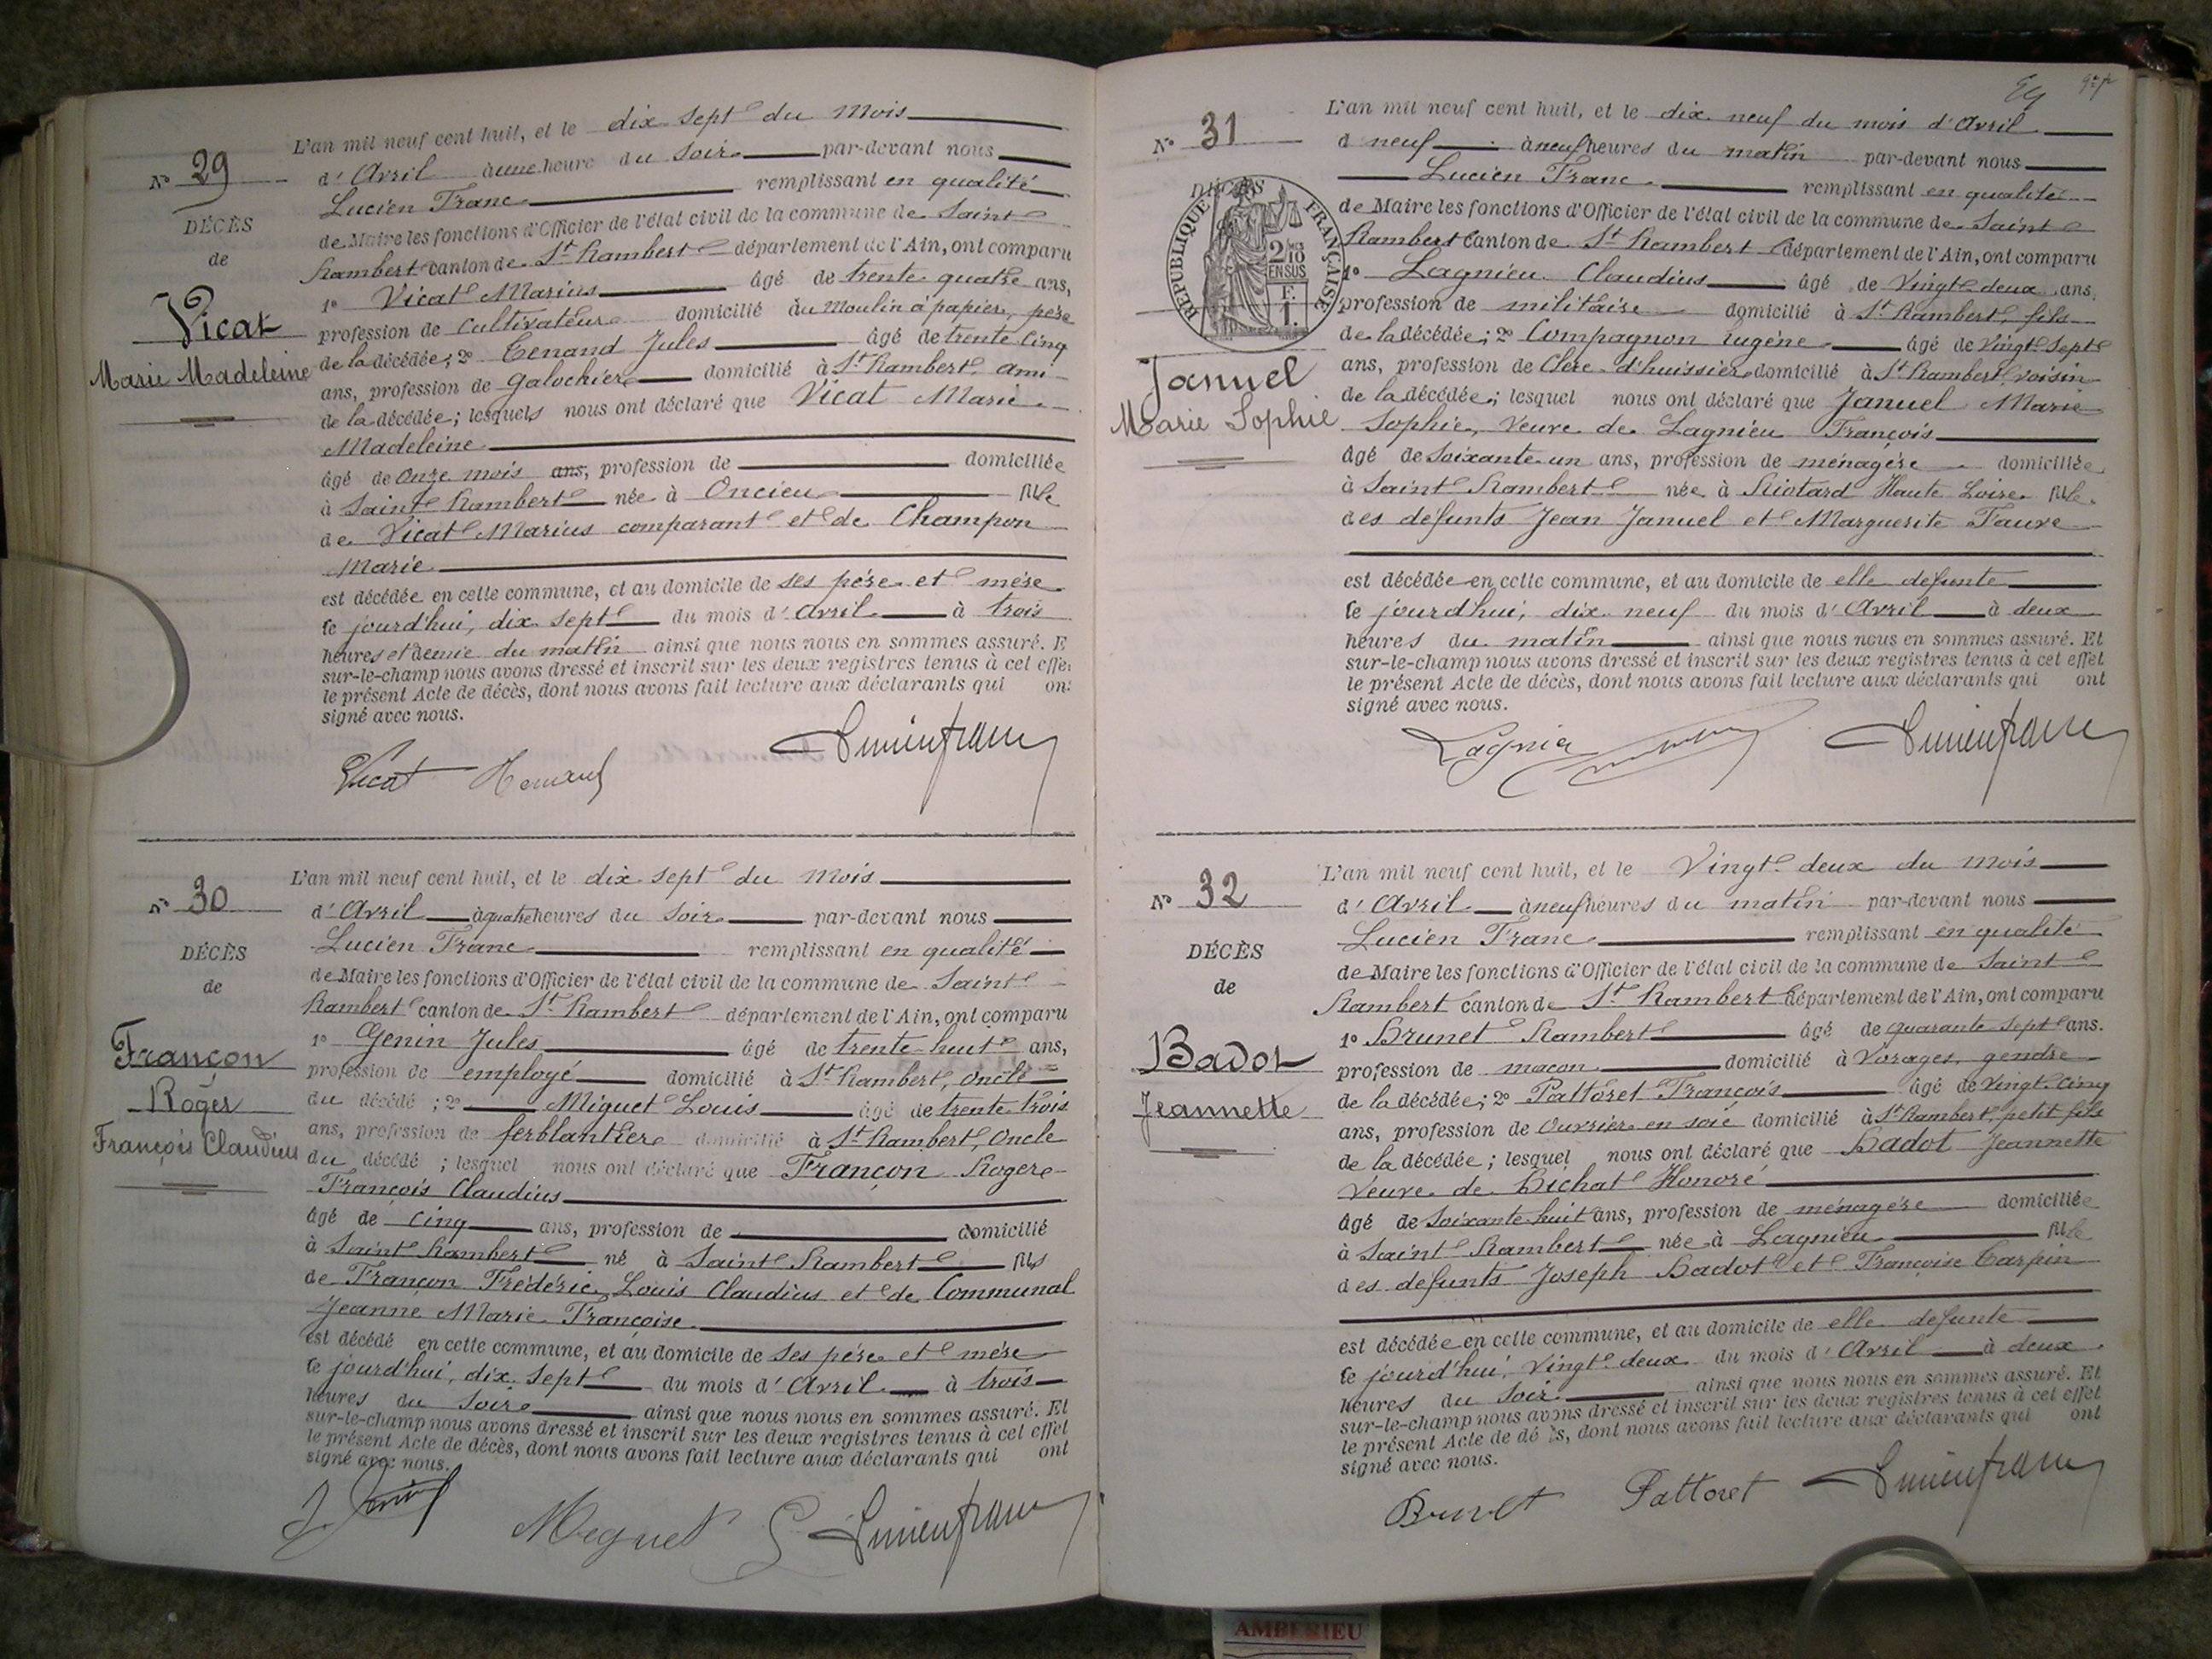 N° 29
DÉCÈS
de
Vicat
Marie Madeleine
L'an mil neuf cent huit, et le dix sept du mois
d'Avril à une heure du soir par-devant nous
Lucien Franc remplissant en qualité
de Maire les fonctions d'Officier de l'état civil de la commune de Saint
Rambert canton de St Rambert département de l'Ain, ont comparu
1° Vicat Marius âgé de trente quatre ans,
profession de cultivateur domicilié au Moulin à papier, père
de la décédée; 2° Tenand Jules âgé de trente cinq
ans, profession de galochier domicilié à St Rambert ami
de la décédée; lesquels nous ont déclaré que Vicat Marie
Madeleine
âgé de onze mois ans, profession de domiciliée
à Saint Rambert née à Oncieu fille
de Vicat Marius comparant et de Champon
Marie
est décédée en cette commune, et au domicile de ses père et mère
ce jourd'hui, dix sept du mois d'Avril à trois
heures et demie du matin ainsi que nous nous en sommes assuré. E
sur-le-champ nous avons dressé et inscrit sur les deux registres tenus à cet effe
le présent Acte de décès, dont nous avons fait lecture aux déclarants qui on
signé avec nous.
Vicat Lucien franc
N° 30
DÉCÈS
de
Françon
Roger
François Claudius
L'an mil neuf cent huit, et le dix sept du mois
d'Avril à quatre heures du soir par-devant nous
Lucien Franc remplissant en qualité
de Maire les fonctions d'Officier de l'état civil de la commune de Saint
Rambert canton de St Rambert département de l'Ain, ont comparu
1° Genin Jules âgé de trente-huit ans,
profession de employé domicilié à St Rambert, oncle
du décédé; 2° Miguet Louis âgé de trente trois
ans, profession de ferblantier domicilié à St Rambert, oncle
du décédé; lesquel nous ont déclaré que Françon Roger
François Claudius
âgé de cinq ans, profession de domicilié
à Saint Rambert né à Saint Rambert fils
de Françon Frédéric Louis Claudius et de Communal
Jeanne Marie Françoise
est décédé en cette commune, et au domicile de ses père et mère
ce jourd'hui, dix sept du mois d'Avril à trois
heures du soir ainsi que nous nous en sommes assuré. Et
sur-le-champ nous avons dressé et inscrit sur les deux registres tenus à cet effet
le présent Acte de décès, dont nous avons fait lecture aux déclarants qui ont
signé avec nous.
Miguet L Lucien franc
N° 31
DÉCÈS
RÉPUBLIQUE FRANÇAISE
2/10
EN SUS
Januel
Marie Sophie
L'an mil neuf cent huit, et le dix neuf du mois d'Avril
à neuf à neuf heures du matin par-devant nous
Lucien Franc remplissant en qualité
de Maire les fonctions d'Officier de l'état civil de la commune de Saint
Rambert canton de St Rambert département de l'Ain, ont comparu
1° Lagnieu Claudius âgé de vingt deux ans,
profession de militaire domicilié à St Rambert, fils
de la décédée; 2° Compagnon Eugène âgé de vingt sept
ans, profession de Clerc d'huissier domicilié à St Rambert voisin
de la décédée; lesquel nous ont déclaré que Januel Marie
Sophie, veuve de Lagnieu François
âgé de soixante un ans, profession de ménagère domiciliée
à Saint Rambert née à Riotard Haute Loire fille
des défunts Jean Januel et Marguerite Faure
est décédée en cette commune, et au domicile de elle defunte
ce jourd'hui, dix neuf du mois d'Avril à deux
heures du matin ainsi que nous nous en sommes assuré. Et
sur-le-champ nous avons dressé et inscrit sur les deux registres tenus à cet effet
le présent Acte de décès, dont nous avons fait lecture aux déclarants qui ont
signé avec nous.
Lagnieu Lucien franc
N° 32
DÉCÈS
de
Badot
Jeannette
L'an mil neuf cent huit, et le Vingt deux du mois
d'Avril à neuf heures du matin par-devant nous
Lucien Franc remplissant en qualité
de Maire les fonctions d'Officier de l'état civil de la commune de Saint
Rambert canton de St Rambert département de l'Ain, ont comparu
1° Brunet Rambert âgé de quarante sept ans.
profession de maçon domicilié à Vorages, gendre
de la décédée; 2° Pattoret François âgé de vingt cinq
ans, profession de Ouvrier en soie domicilié à St Rambert, petit fils
de la décédée; lesquel nous ont déclaré que Badot Jeannette
Veuve de Bichat Honoré
âgé de soixante-huit ans, profession de ménagère domiciliée
à Saint Rambert née à Lagnieu fille
des défunts Joseph Badot et Françoise Carpin
est décédée en cette commune, et au domicile de elle defunte
ce jourd'hui, Vingt deux du mois d'Avril à deux
heures du soir ainsi que nous nous en sommes assuré. Et
sur-le-champ nous avons dressé et inscrit sur les deux registres tenus à cet effet
le présent Acte de décès, dont nous avons fait lecture aux déclarants qui ont
signé avec nous.
Brunet Pattoret Lucien franc
AMBERIEU